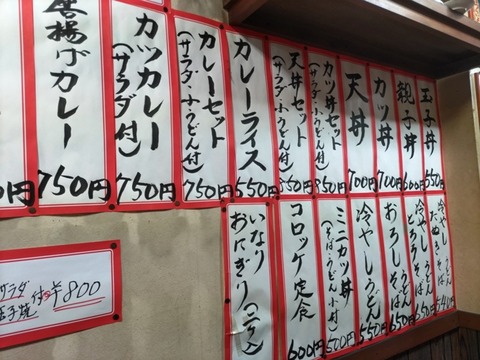 玉子丼
550円
親子丼
600円
カツ丼
700円
天丼
700円
カツ丼セット
(サラダ・小うどん付)
850円
天丼セット
(サラダ・小うどん付)
850円
カレーライス
550円
カレーセット
(サラダ・小うどん付)
750円
カツカレー
(サラダ付)
750円
唐揚げカレー
750円
円
冷やし
そば
540円
冷やしうどん
そば
650円
おろしうどん
そば
650円
冷やしうどん
550円
ミニカツ丼
(そば・うどん付)
500円
コロッケ定食
600円
いなり
おにぎり(二ケ)
サラダ
玉子焼
付き ¥800